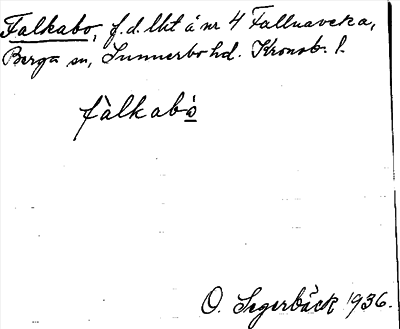 Falkabo, f.d. lht å nr 4 Fallnaveka,
Berga sn, Sunnerbo hd. Kronob. l.
fàlkabò
O. Segerbäck 1936.